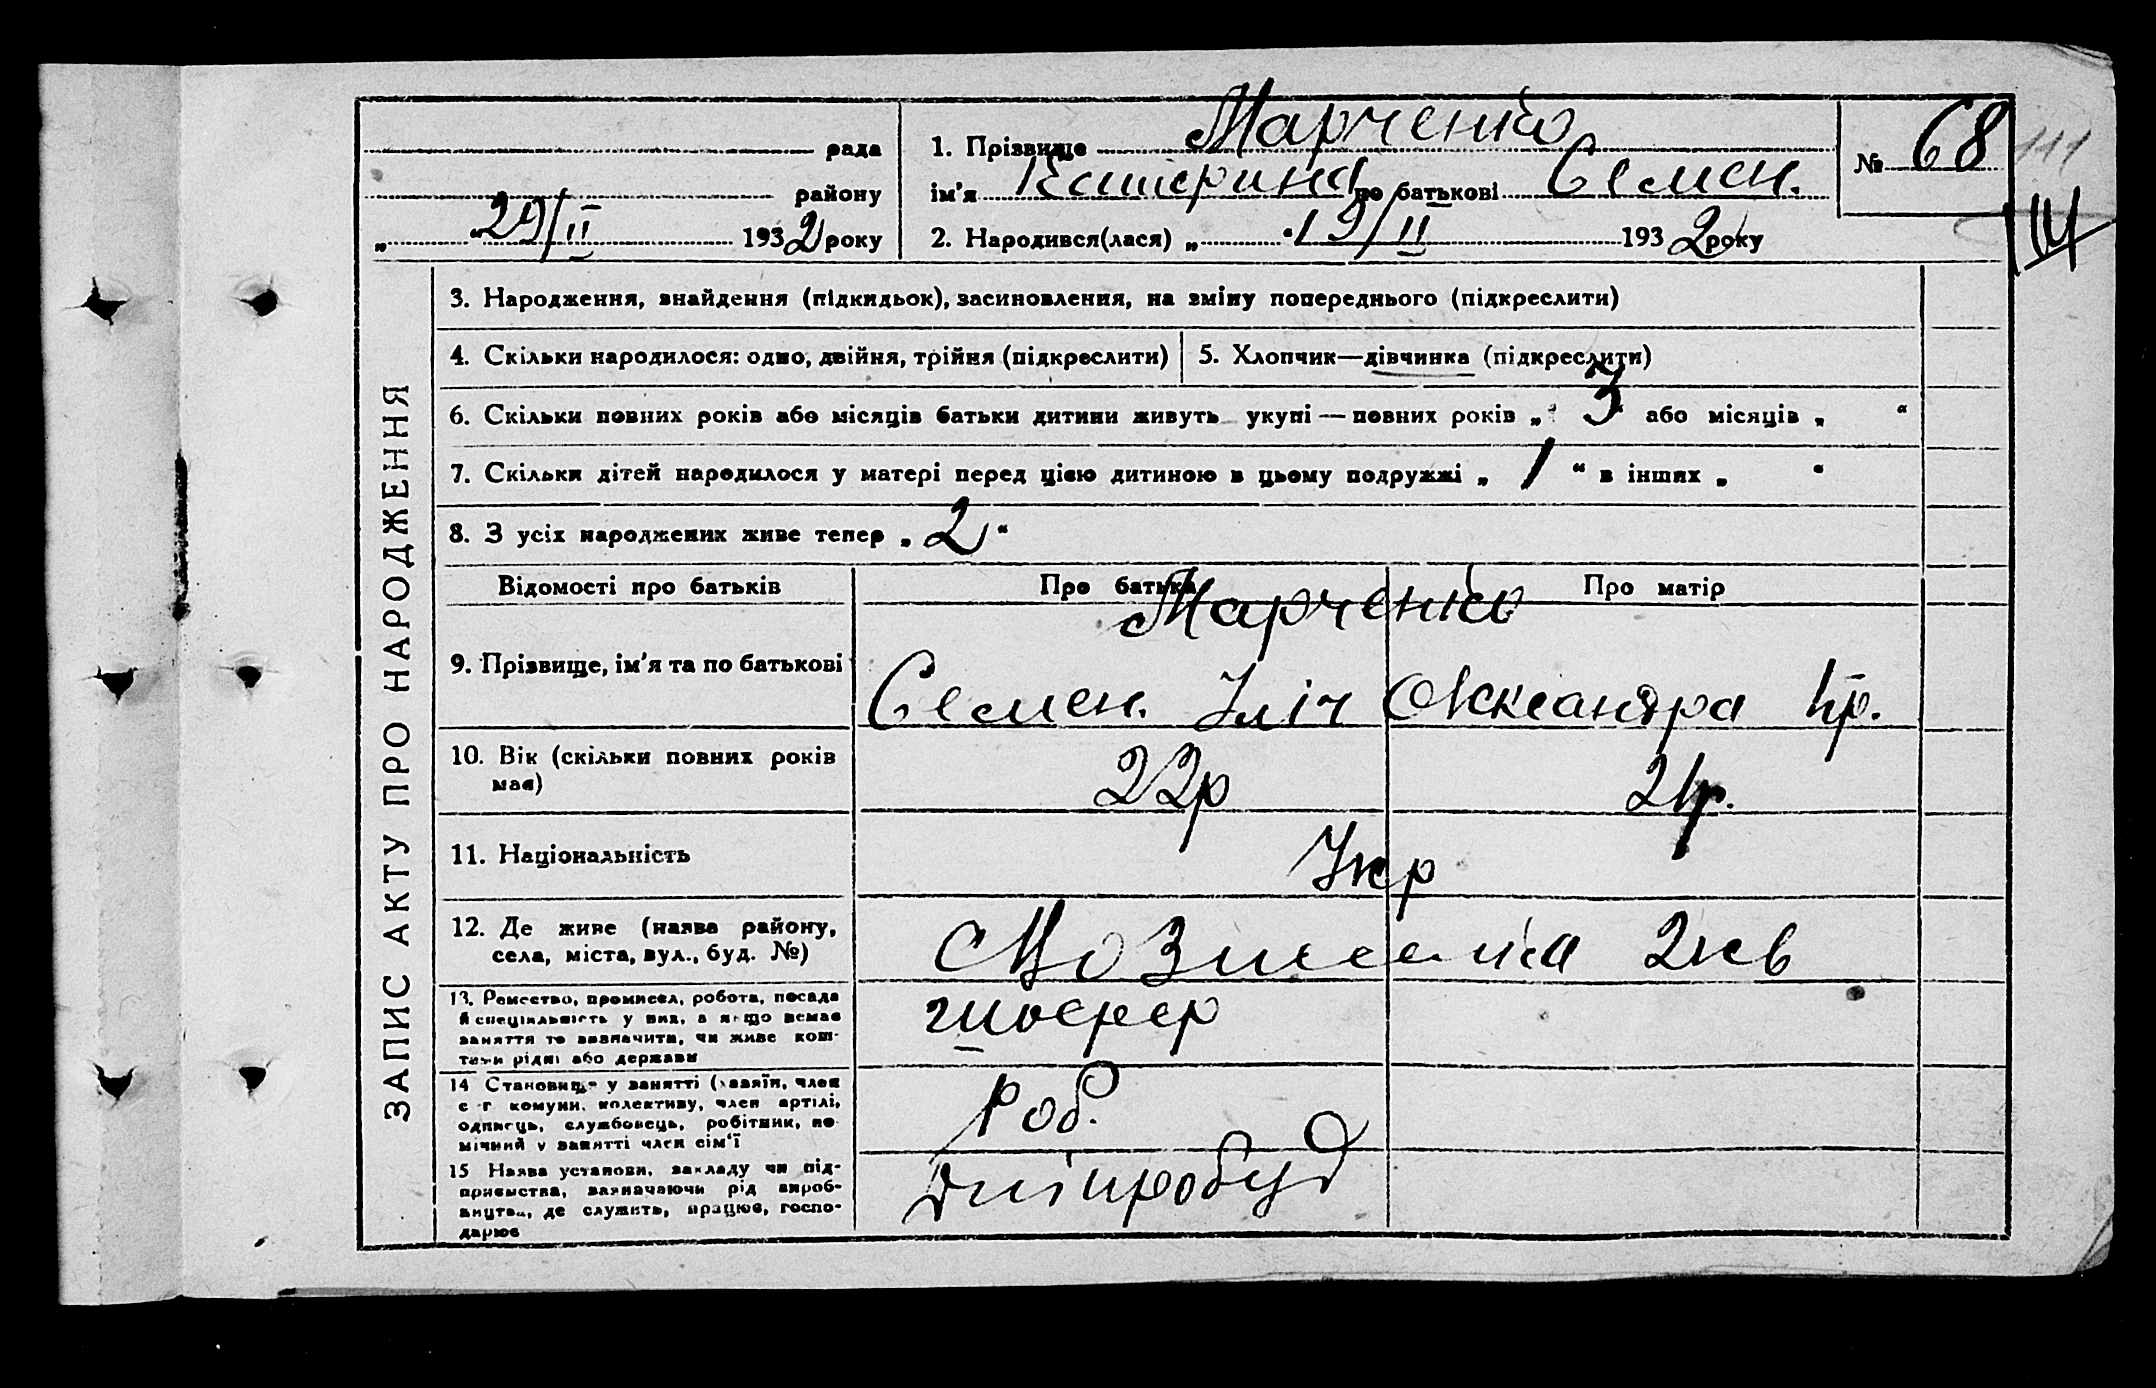 ЗАПИС АКТУ ПРО НАРОДЖЕННЯ
рада
району
„ “ 29/II 1932 року
1. Прізвище Марченко
ім'я Катерина по батькові Семен.
2. Народився(лася) „ “ 19/II 1932 року
№ 68
3. Народження, знайдення (підкидьок), засиновлення, на зміну попереднього (підкреслити)
4. Скільки народилося: одно, двійня, трійня (підкреслити)
5. Хлопчик—дівчинка (підкреслити)
6. Скільки повних років або місяців батьки дитини живуть укупі — повних років „ 3 “ або місяців „ “
7. Скільки дітей народилося у матері перед цією дитиною в цьому подружжі „ 1 “ в інших „ “
8. З усіх народжених живе тепер „ 2 “
Відомості про батьків
Про батька
Про матір
Марченко
9. Прізвище, ім'я та по батькові
Семен. Іліч
Олександра Пр.
10. Вік (скільки повних років
має)
22р
21р.
11. Національність
Укр
12. Де живе (назва району,
села, міста, вул., буд. №)
2кв
13. Ремество, промисел, робота, посада
й спеціяльність у них, а якщо немає
заняття то визначити, чи живе кош-
тами рідні або держави
шофер
14 Становище у занятті (хазяїн, член
с-г комуни, колективу, член артілі,
одинець, службовець, робітник, по-
мічний у занятті член сім'ї
Роб.
15 Назва установи, закладу чи під-
приємства, зазначаючи рід вироб-
ництва, де служить, працює, госпо-
дарює
Дніпробуд